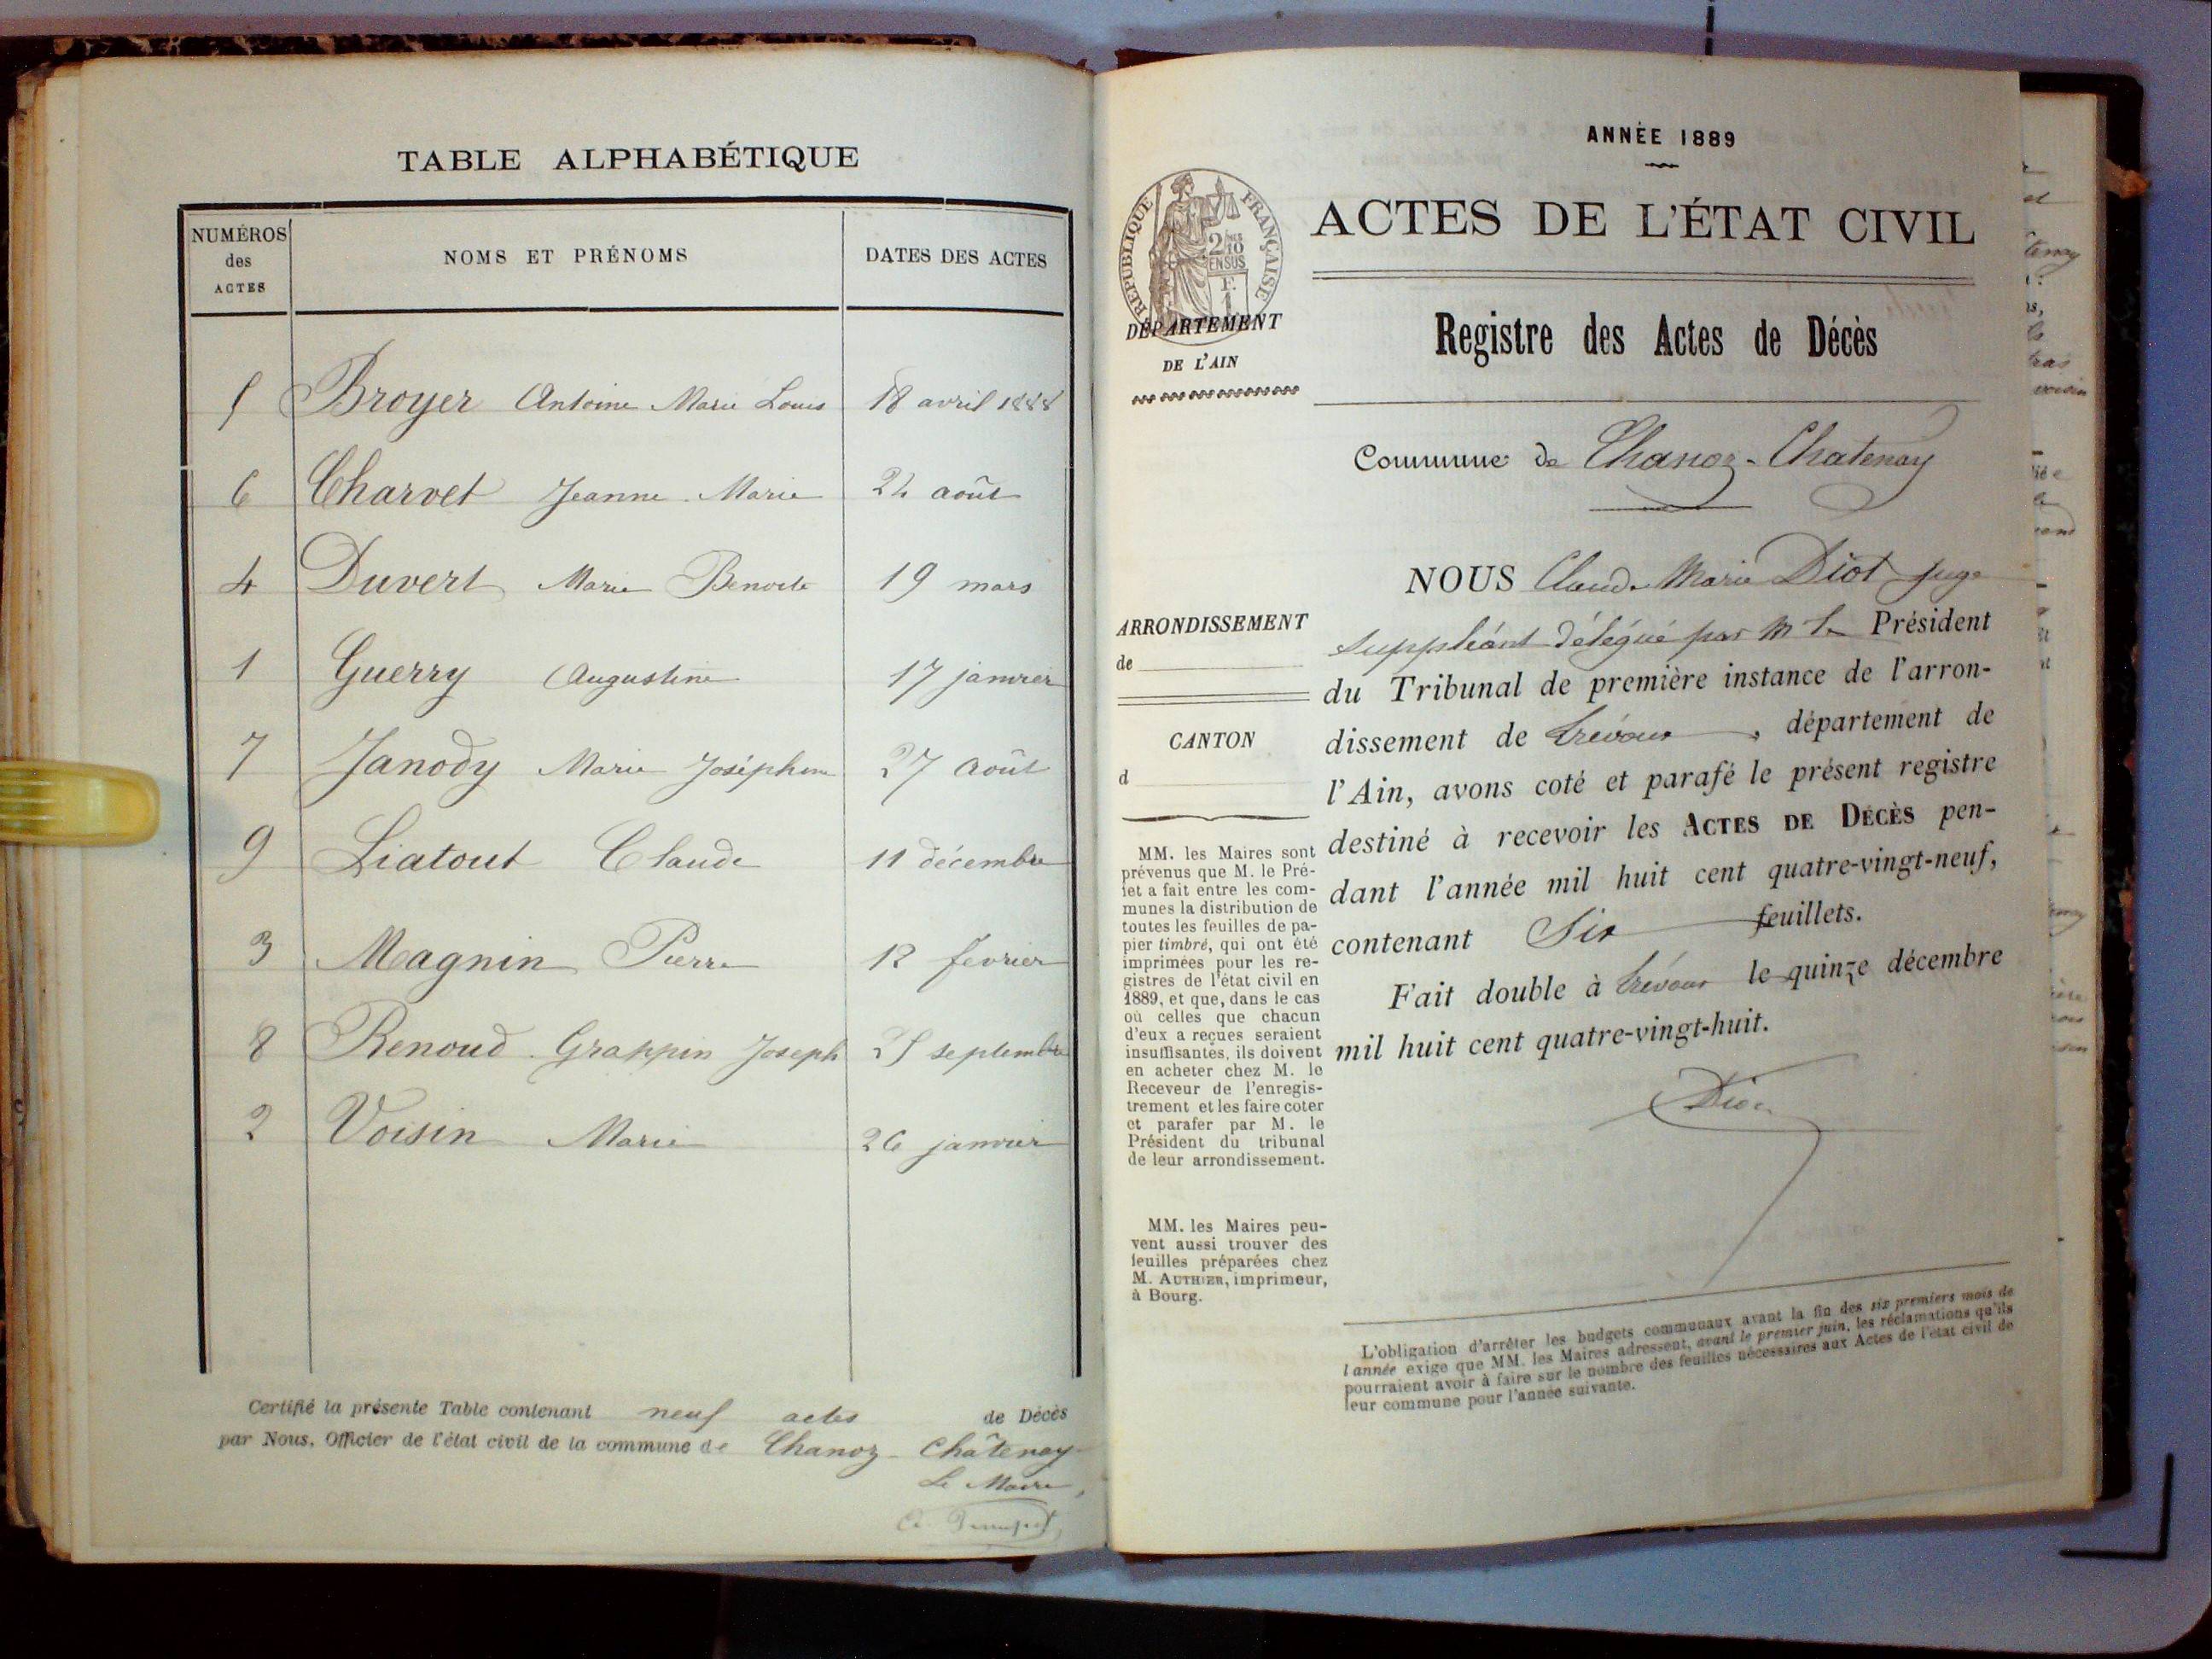 TABLE ALPHABÉTIQUE
NUMÉROS des ACTES
NOMS ET PRÉNOMS
DATES DES ACTES
5 Broyer Antoine Marie Louis 18 avril 1888
6 Charvet Jeanne Marie 24 août
4 Duvert Marie Benoite 19 mars
1 Guerry Augustine 17 janvier
7 Janody Marie Joséphine 27 août
9 Liatout Claude 11 décembre
3 Magnin Pierre 12 février
8 Renoud Grappin Joseph 25 septembre
2 Voisin Marie 26 janvier
Certifié la présente Table contenant neuf actes de Décès
par Nous, Officier de l'état civil de la commune de Chanoz-Châtenay
Le Maire,
ANNÉE 1889
RÉPUBLIQUE FRANÇAISE
2/10 EN SUS
F. 1
ACTES DE L'ÉTAT CIVIL
DÉPARTEMENT
DE L'AIN
Registre des Actes de Décès
Commune de Chanoz-Chatenay
ARRONDISSEMENT
de
CANTON
d
MM. les Maires sont
prévenus que M. le Pré-
fet a fait entre les com-
munes la distribution de
toutes les feuilles de pa-
pier timbré, qui ont été
imprimées pour les re-
gistres de l'état civil en
1889, et que, dans le cas
où celles que chacun
d'eux a reçues seraient
insuffisantes, ils doivent
en acheter chez M. le
Receveur de l'enregis-
trement et les faire coter
et parafer par M. le
Président du tribunal
de leur arrondissement.
MM. les Maires peu-
vent aussi trouver des
feuilles préparées chez
M. AUTHIER, imprimeur,
à Bourg.
NOUS Claude Marie Diot juge
suppléant délégué par M le Président
du Tribunal de première instance de l'arron-
dissement de Trévoux, département de
l'Ain, avons coté et parafé le présent registre
destiné à recevoir les ACTES DE DÉCÈS pen-
dant l'année mil huit cent quatre-vingt-neuf,
contenant Six feuillets.
Fait double à Trévoux le quinze décembre
mil huit cent quatre-vingt-huit.
Diot
L'obligation d'arrêter les budgets communaux avant la fin des six premiers mois de
l'année exige que MM. les Maires adressent, avant le premier juin, les réclamations qu'ils
pourraient avoir à faire sur le nombre des feuilles nécessaires aux Actes de l'état civil de
leur commune pour l'année suivante.